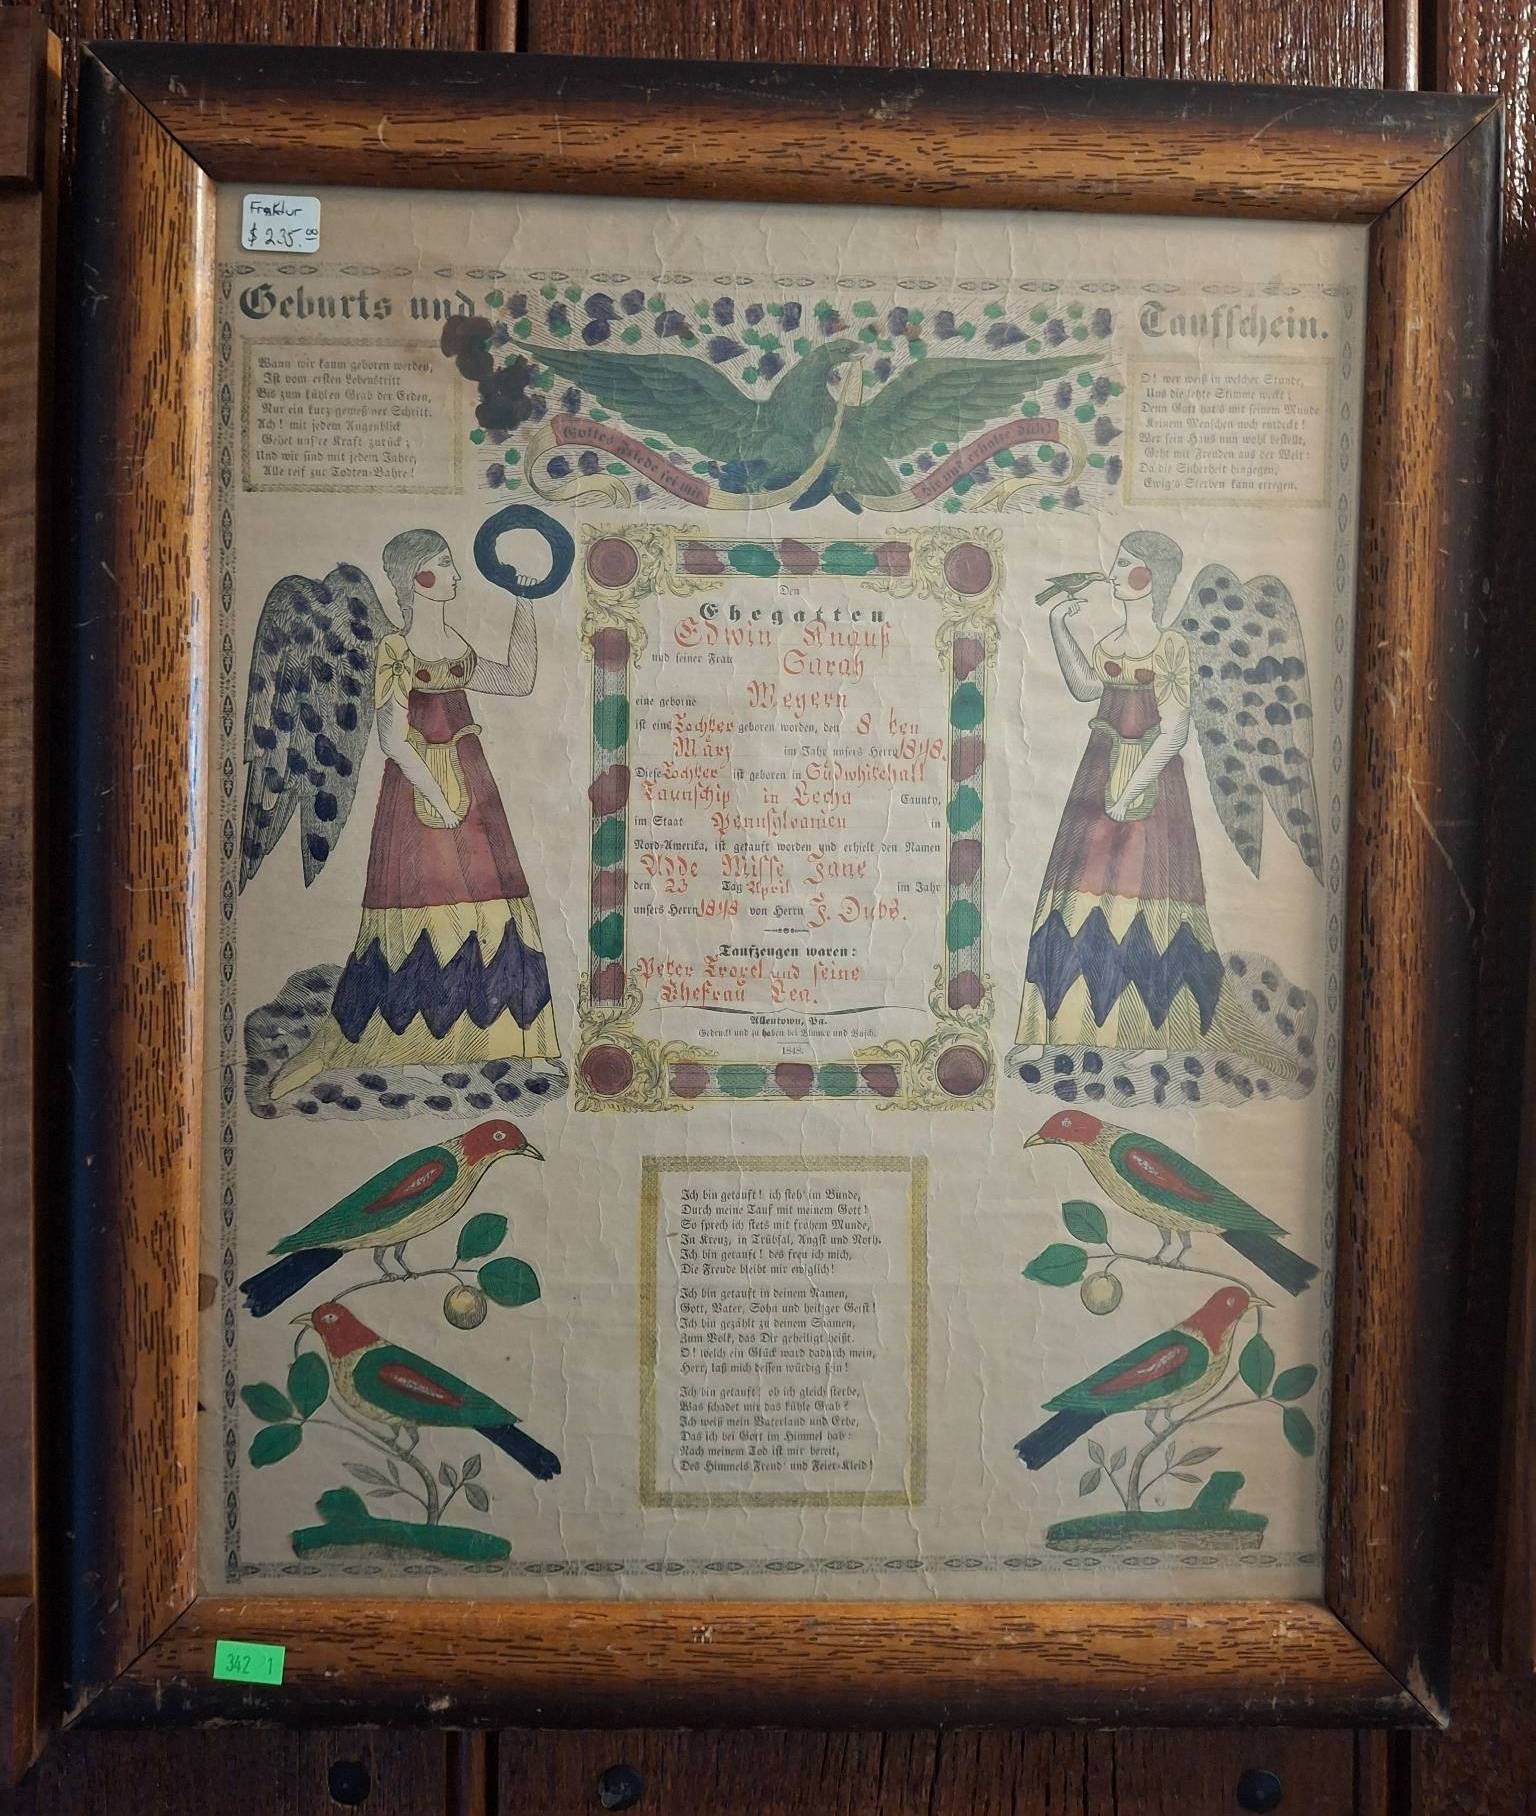 Fraktur
$ 235.00
Geburts und
Taufschein.
Wann wir kaum geboren werden,
Ist vom ersten Lebenstritt
Bis zum kühlen Grab der Erden,
Nur ein kurz gemeß'ner Schritt.
Ach! mit jedem Augenblick
Gehet unsre Kraft zurück;
Und wir sind mit jedem Jahre,
Alle reif zur Todten-Bahre!
Gottes Friede sei mit
dir und erhalte dich!
O! wer weiß in welcher Stunde,
Uns die letzte Stimme weckt;
Denn Gott hat's mit seinem Munde
Keinem Menschen noch entdeckt!
Wer sein Haus nun wohl bestellt,
Geht mit Freuden aus der Welt:
Da die Sicherheit hingegen,
Ewig's Sterben kann erregen.
Den
Ehegatten
Edwin Knauß
und seiner Frau Sarah
eine geborne Meyern
ist eine Tochter geboren worden, den 8 ten
März im Jahr unsers Herrn 1848.
Diese Tochter ist geboren in Südwhitehall
Taunschip in Lecha Caunty,
im Staat Pennsylvanien in
Nord-Amerika, ist getauft worden und erhielt den Namen
Adde Misse Jane
den 23 Tag April im Jahr
unsers Herrn 1848 von Herrn J. Dubs.
Taufzeugen waren:
Peter Troxel und seine
Ehefrau Lea.
Allentown, Pa.
Gedruckt und zu haben bei Blumer und Busch.
1848.
Ich bin getauft! ich steh' im Bunde,
Durch meine Tauf mit meinem Gott!
So sprech ich stets mit frohem Munde,
In Kreuz, in Trübsal, Angst und Noth.
Ich bin getauft! des freu ich mich,
Die Freude bleibt mir ewiglich!
Ich bin getauft in deinem Namen,
Gott, Vater, Sohn und heiliger Geist!
Ich bin gezählt zu deinem Saamen,
Zum Volk, das Dir geheiligt heißt.
O! welch ein Glück ward dadurch mein,
Herr, laß mich dessen würdig sein!
Ich bin getauft! ob ich gleich sterbe,
Was schadet mir das kühle Grab?
Ich weiß mein Vaterland und Erbe,
Das ich bei Gott im Himmel hab:
Nach meinem Tod ist mir bereit,
Des Himmels Freud' und Feier-Kleid!
342 1